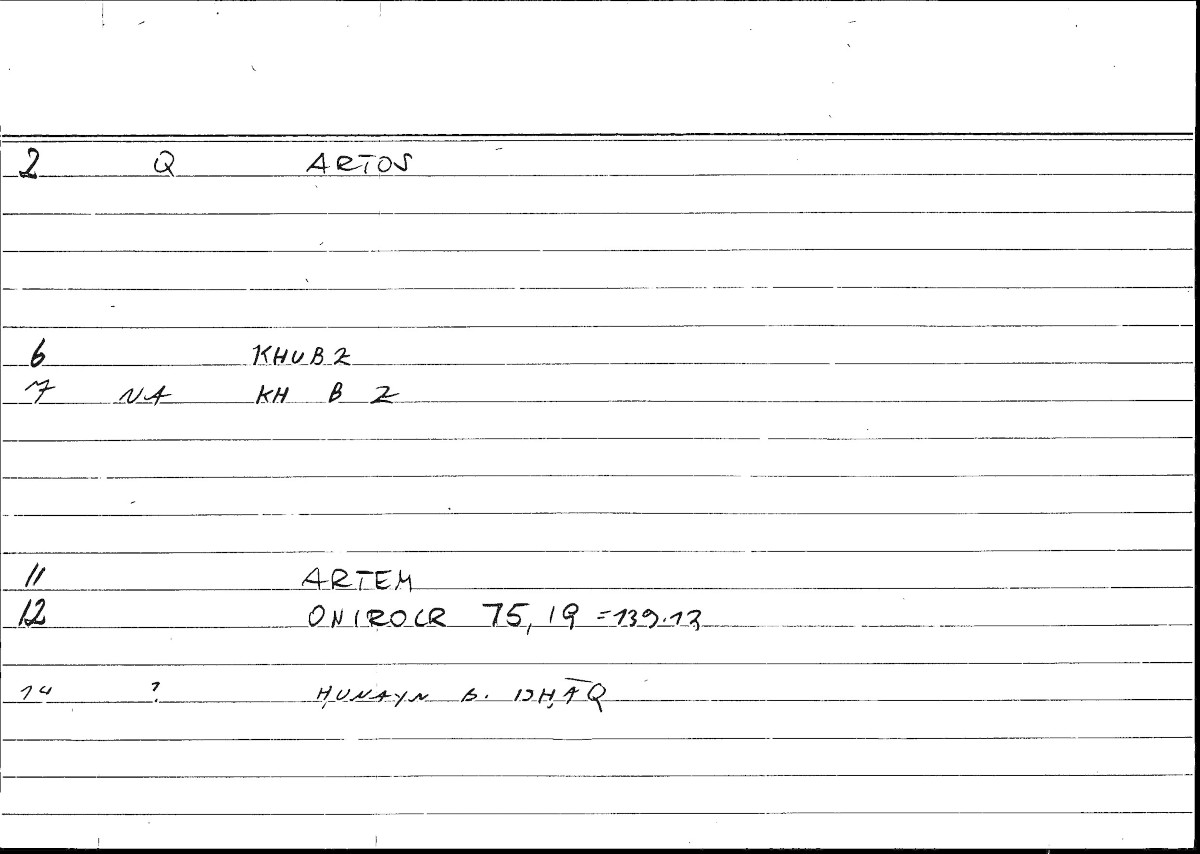 2 Q ARTOS
6 KHUBZ
7 NA KH B Z
11 ARTEM
12 ONIROCR 75,19 =139.13
14 ? ḤUNAYN B. ISḤĀQ